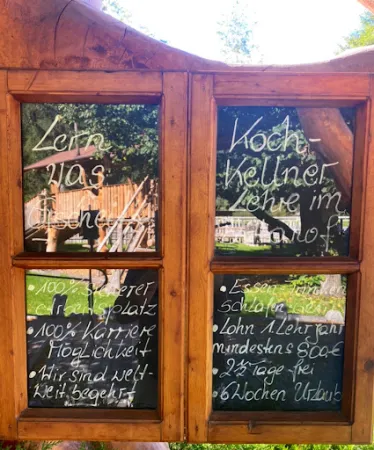 Lern
was
Gscheit's
Koch-
Kellner
Lehre im
• 100% sicherer
Arbeitsplatz
• 100% Karriere
Möglichkeit
• Wir sind welt-
weit begehrt
• Essen trinken
schlafen
• Lohn 1 Lehrjahr
mindestens 800€
• 2½ Tage frei
• 6 Wochen Urlaub